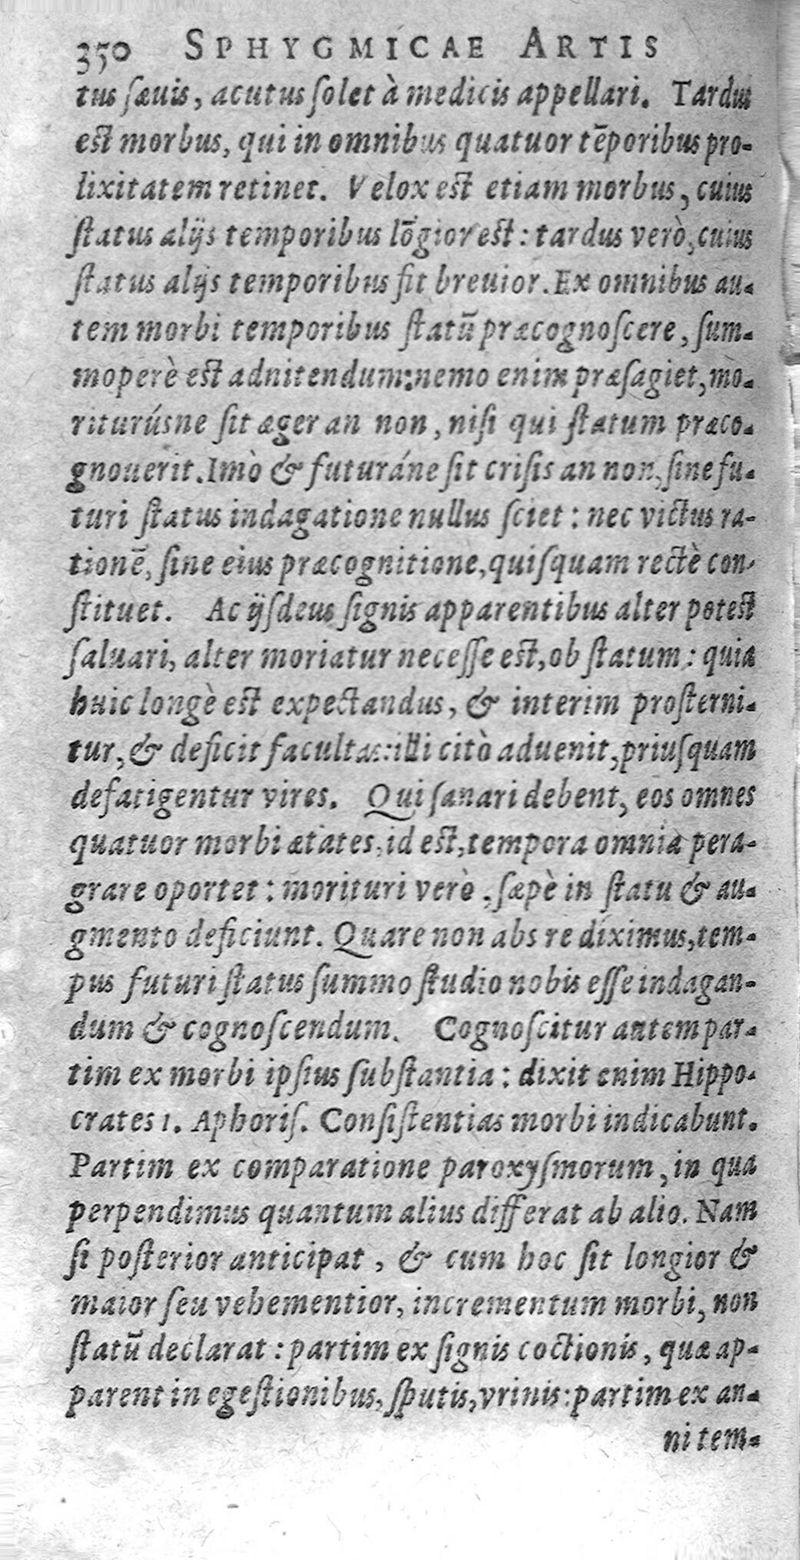 350 SPHYGMICAE ARTIS
tus sæuis, acutus solet à medicis appellari. Tardus
est morbus, qui in omnibus quatuor tẽporibus pro-
lixitatem retinet. Velox est etiam morbus, cuius
ſtatus alijs temporibus lõgior est: tardus verò, cuius
ſtatus alijs temporibus ſit breuior. Ex omnibus au-
tem morbi temporibus ſtatũ præcognoſcere, ſum-
moperè est adnitendum: nemo enim præſagiet, mò-
riturúsne ſit æger an non, niſi qui ſtatum præco-
gnouerit. Imò & futuráne ſit criſis an non, ſine fu-
turi ſtatus indagatione nullus ſciet: nec victus ra-
tionẽ, ſine eius præcognitione, quiſquam rectè con-
ſtituet. Ac ijſdeus ſignis apparentibus alter potest
ſaluari, alter moriatur neceſſe est, ob ſtatum: quia
huic longè est expectandus, & interim proſterni-
tur, & deficit facultas: illi citò aduenit, priuſquam
defatigentur vires. Qui ſanari debent, eos omnes
quatuor morbi ætates, id est, tempora omnia pera-
grare oportet: morituri verò, ſæpè in ſtatu & au-
gmento deficiunt. Quare non abs re diximus, tem-
pus futuri ſtatus ſummo ſtudio nobis eſſe indagan-
dum & cognoſcendum. Cognoſcitur autem par-
tim ex morbi ipſius ſubſtantia: dixit enim Hippo-
crates 1. Aphoriſ. Conſiſtentias morbi indicabunt.
Partim ex comparatione paroxyſmorum, in qua
perpendimus quantum alius differat ab alio. Nam
ſi poſterior anticipat, & cum hoc ſit longior &
maior ſeu vehementior, incrementum morbi, non
ſtatũ declarat: partim ex ſignis coctionis, quæ ap-
parent in egeſtionibus, ſputis, vrinis: partim ex an-
ni tem-